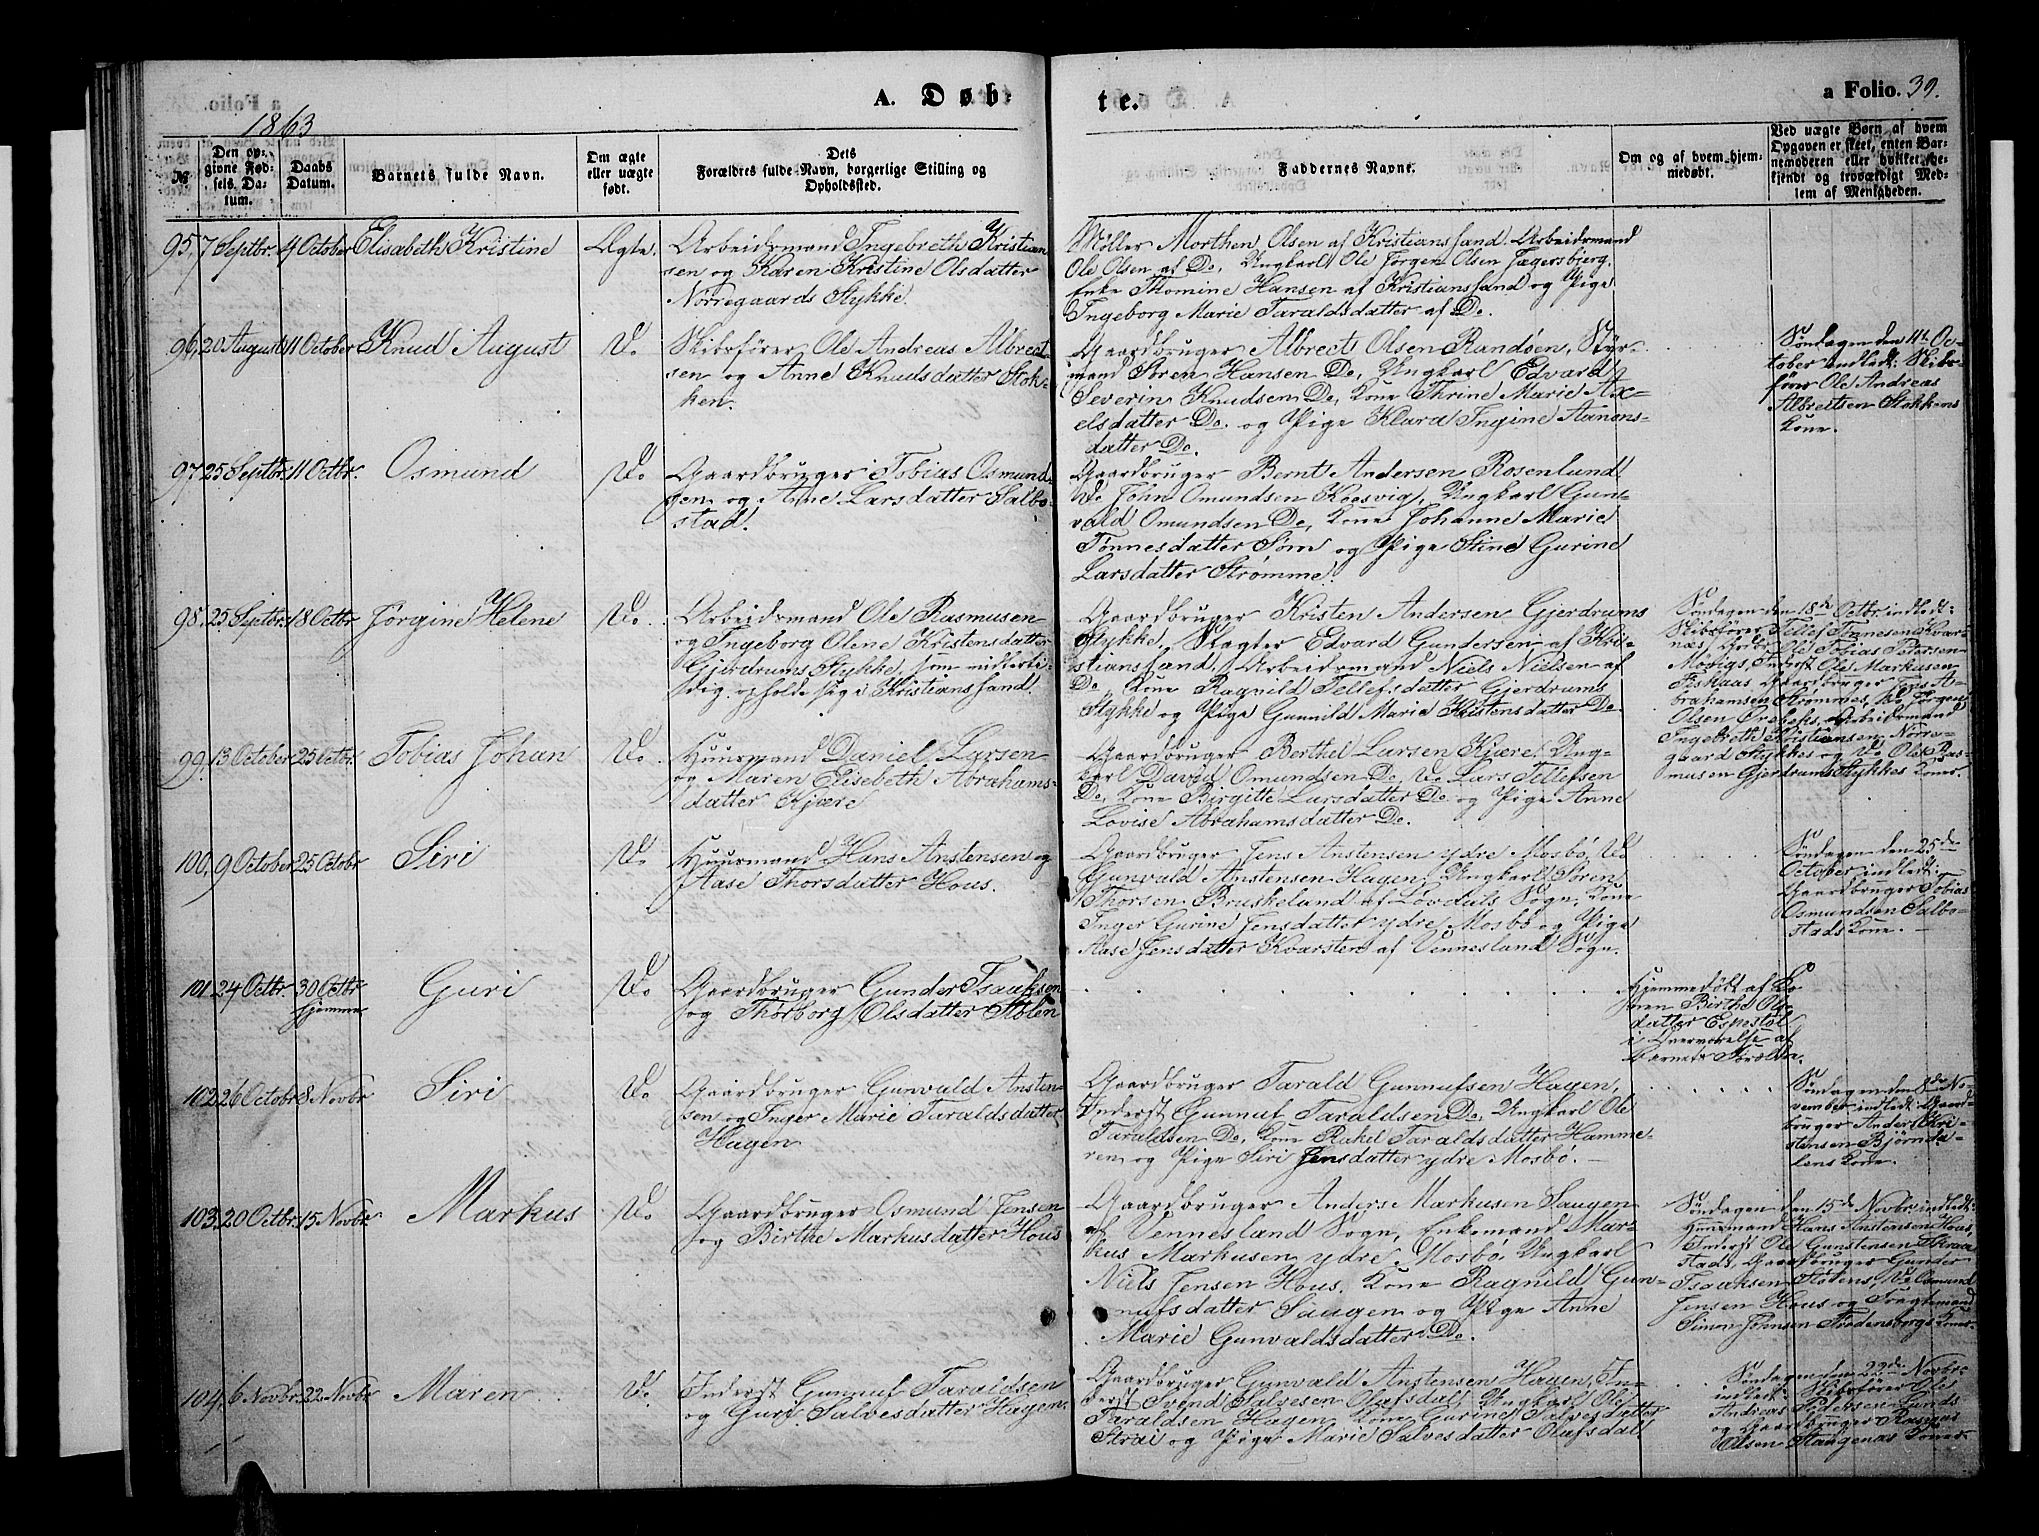 A. Døbte.
a Folio. 39.
1863
№
Den opgivne Fødsels-Datum.
Daabs Datum.
Barnets fulde Navn.
Om ægte eller uægte født.
Dets Forældres fulde Navn, borgerlige Stilling og Opholdssted.
Faddernes Navne.
Om og af hvem hjemmedøbt.
Ved uægte Børn af hvem Opgaven er skeet, enten Barnemoderen eller hvilket bekjendt og troværdigt Medlem af Menigheden.
95. 7 Septbr. 4 October Elisabeth Kristine Ægte.
Arbeidsmand Ingebreth Kristian
sen og Karen Kristine Olsdatter
Nørregaards Stykke.
Møller Morthen Olsen af Kristianssand. Arbeidsmand
Ole Olsen af Do, Ungkarl Ole Jørgen Olsen Jægersbjerg.
Enke Thomine Hansen af Kristianssand og Pige
Ingeborg Marie Taraldsdatter af Do.
96. 20 August 11 October Knud August Do
Skibsfører Ole Andreas Albret
sen og Anne Knudsdatter Stok-
ken.
Gaardbruger Albrect Olsen Randøen, Styr-
mand Søren Hansen Do, Ungkarl Edvard
Severin Knudsen Do, Kone Thrine Marie Ax-
elsdatter Do. og Pige Klara Ingine Aanons-
datter Do.
Søndagen den 11te Oc-
tober indledt: Skibs-
fører Ole Andreas
Albretsen Stokkens
Kone.
97. 25 Septbr. 11 Octbr. Osmund Do
Gaardbruger Tobias Osmund
sen og Anne Larsdatter Salbo-
stad.
Gaardbruger Bernt Andersen Rosenlund
Do John Omundsen Kor­svig, Ungkarl Gun-
vald Omundsen Do, Kone Johanne Marie
Tønnesdatter Søm og Pige Stine Gurine
Larsdatter Strømme.
98. 25 Septbr. 18 Octbr Jørgine Helene Do.
Arbeidsmand Ole Rasmusen
og Ingeborg Olene Kristensdatter
Gjerdrums Stykke, som midlerti-
dig opholde sig i Kristianssand.
Gaardbruger Kristen Andersen Gjerdrums
Stykke, Slagter Edvard Gundersen af Kri-
stianssand, Arbeidsmand Niels Nielsen af
Do, Kone Ragnild Tellefsdatter Gjerdrums
Stykke og Pige Gunnild Marie Kristensdatter Do.
Søndagen den 18de Octbr. indledt:
Skibsfører Tellef Tønnesen Kvar-
næs, Arbdr. Ole Tobias Petersen
Movigs, Inderst Ole Markusen
Fiskaas Gaardbruger Jens A-
brahamsen Strømnes, Do Jørgen
Olsen Drebeks, Arbeidsmand
Ingebreth Kristiansen Nørre-
gaard Stykkes og Do Ole Ras-
musen Gjerdrums Stykkes Koner.
99. 13 October 25 Octbr. Tobias Johan Do.
Huusmand Daniel Larsen
og Maren Elisebeth Abrahams-
datter Kjære
Gaardbruger Berthel Larsen Kjære, Ung-
karl David Omundsen Do, Do Lars Tellefsen
Do, Kone Birgitte Larsdatter Do og Pige Anne
Lovise Abrahamsdatter Do.
100. 9 October 25 Octobr Siri Do
Huusmand Hans Anstensen og
Aase Thorsdatter Hous.
Gaardbruger Jens Anstensen ydre Mosbø, Do
Gunvald Anstensen Hagen, Ungkarl Søren
Thorsen Bruskeland af Løvdals Sogn, Kone
Inger Gurine Jensdatter ydre Mosbø og Pige
Aase Jensdatter Kvarsten af Vennesland Sogn.
Søndagen den 25de
October indledt:
Gaardbruger Tobias
Osmundsen Salbo-
stads Kone.
101. 24 Octbr. 30 Octbr hjemme Guri Do
Gaardbruger Gunder Isaaksen
og Thorborg Olsdatter Stølen
Hjemmedøbt af Ko
nen Birthe Ols-
datter Espestøl
i Overværelse af
Barnets Forældre.
102. 26 October 8 Novbr Siri Do
Gaardbruger Gunvald Ansten-
sen og Inger Marie Taraldsdatter
Hagen
Gaardbruger Tarald Gunnufsen Hagen,
Inderst Gunnuf Taraldsen Do, Ungkarl Ole
Taraldsen Do, Kone Rakel Taraldsdatter Hamme-
ren og Pige Siri Jensdatter ydre Mosbø.
Søndagen den 8de No-
vember indledt: Gaard-
bruger Anders Kri-
stensen Bjørnda-
lens Kone.
103. 20 Octbr. 15 Novbr. Markus Do.
Gaardbruger Osmund Jensen
og Birthe Markusdatter Hous
Gaardbruger Anders Markusen Saugen
af Vennesland Sogn, Enkemand Mar-
kus Markusen ydre Mosbø, Ungkarl
Niels Jensen Hous, Kone Ragnild Gun-
nufsdatter Saugen og Pige Anne
Marie Gunvaldsdatter Do.
Søndagen den 15de Novbr. indledt:
Huusmand Hans Anstensen Hous,
Inderst Ole Gunstensen Skraa
stads, Gaardbruger Gunder
Isaaksen Stølens, Do Osmund
Jensen Hous og Fragtemand
Simon Johnsen Frodensborgs Koner.
104. 6 Novbr. 22 Novbr Maren Do.
Inderst Gunnuf Taraldsen
og Guri Salvesdatter Hagen.
Gaardbruger Gunvald Anstensen Hagen, In-
derst Svend Salvesen Olafsdal, Ungkarl Ole
Taraldsen Hagen, Kone Gurine Salvesdatter
Strai og Pige Marie Salvesdatter Olafsdal
Søndagen den 22de Novbr.
indledt: Skibsfører Ole
Andreas Pedersen Lunds
og Gaardbruger Rasmus
Olsen Haugenas Koner